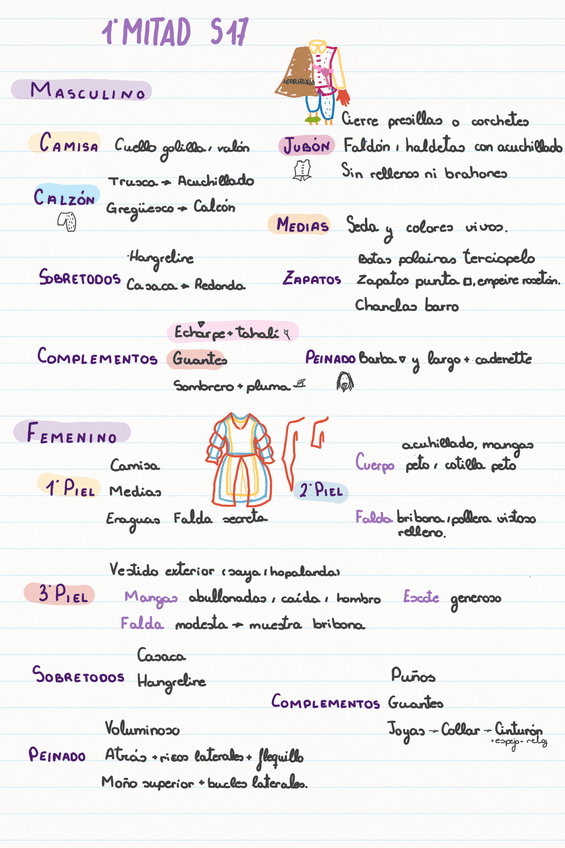 1ª MITAD S17
MASCULINO
CAMISA Cuello golilla, valón
CALZÓN Trusca → Acuchillado
Gregüesco → Calcón
SOBRETODOS Hangreline
Casaca → Redonda
JUBÓN Cierre presillas o corchetes
Faldón, haldetas con acuchillado
Sin rellenos ni brahones
MEDIAS Seda y colores vivos.
ZAPATOS Botas polairas terciopelo
Zapatos punta □, empeire rosetón.
Chanclas barro
COMPLEMENTOS Echarpe + tahalí
Guantes
Sombrero + pluma
PEINADO Barba ▽ y largo + cadenette
FEMENINO
1ª PIEL Camisa
Medias
Enaguas Falda secreta
2ª PIEL
Cuerpo acuhillado, mangas
peto, cotilla peto
Falda bribona, pollera vistoso
relleno.
3ª PIEL Vestido exterior (saya, hopalanda)
Mangas abullonadas, caída, hombro Escote generoso
Falda modesta → muestra bribona
SOBRETODOS Casaca
Hangreline
COMPLEMENTOS Puños
Guantes
Joyas → Collar → Cinturón
+ espejo + reloj
PEINADO Voluminoso
Atrás + rizos laterales + flequillo
Moño superior + bucles laterales.